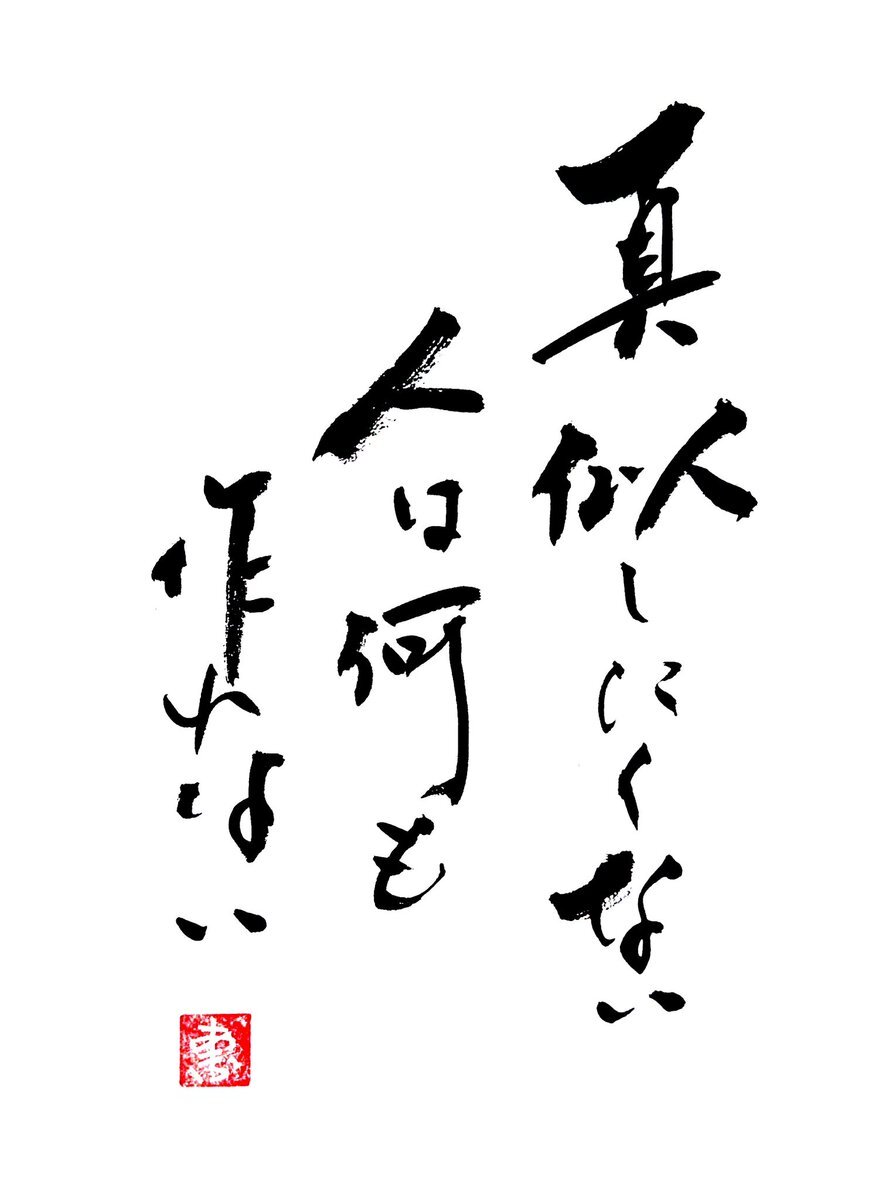 真似しにくない
人は何も
作れない